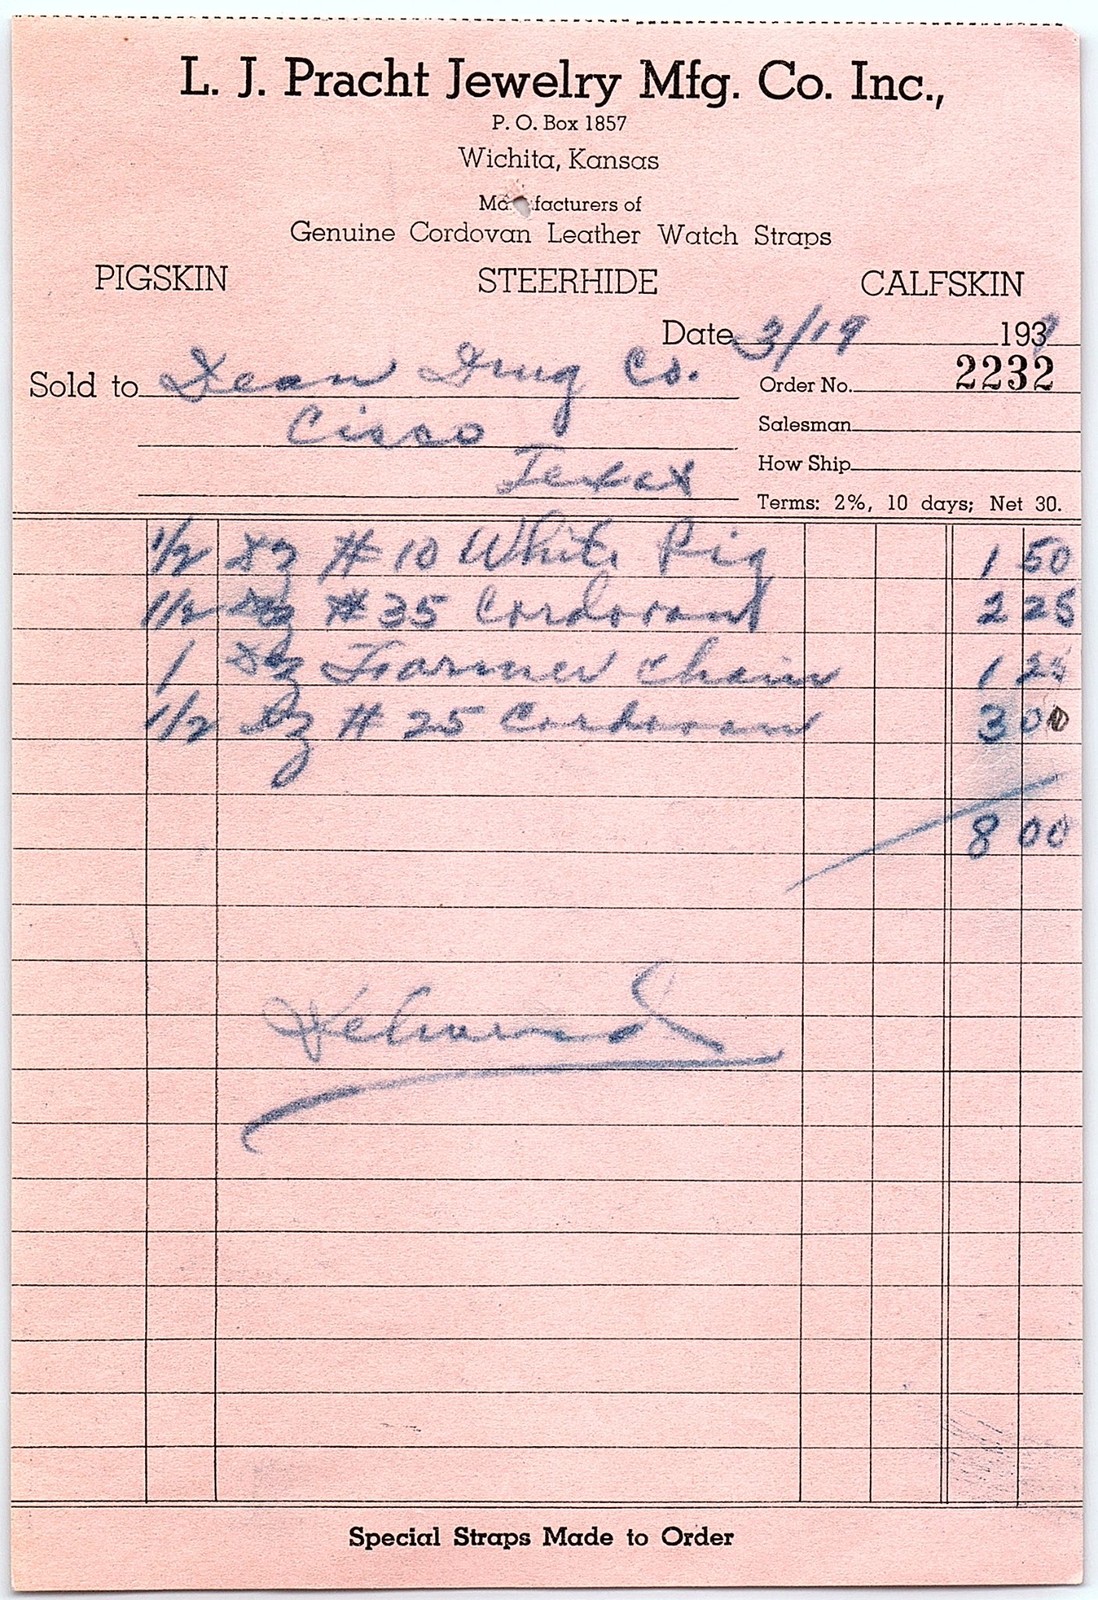 L. J. Pracht Jewelry Mfg. Co. Inc.,
P. O. Box 1857
Wichita, Kansas
Manufacturers of
Genuine Cordovan Leather Watch Straps
PIGSKIN STEERHIDE CALFSKIN
Date 3/19 193
Sold to Dean Drug Co. Order No. 2232
Cisco Salesman
Texas How Ship
Terms: 2%, 10 days; Net 30.
1/2 Dz # 10 White Pig 1 50
1/2 Dz # 35 Cordovan 2 25
1 Dz Farmer Chain 1 25
1/2 Dz # 25 Cordovan 3 00
8 00
Special Straps Made to Order